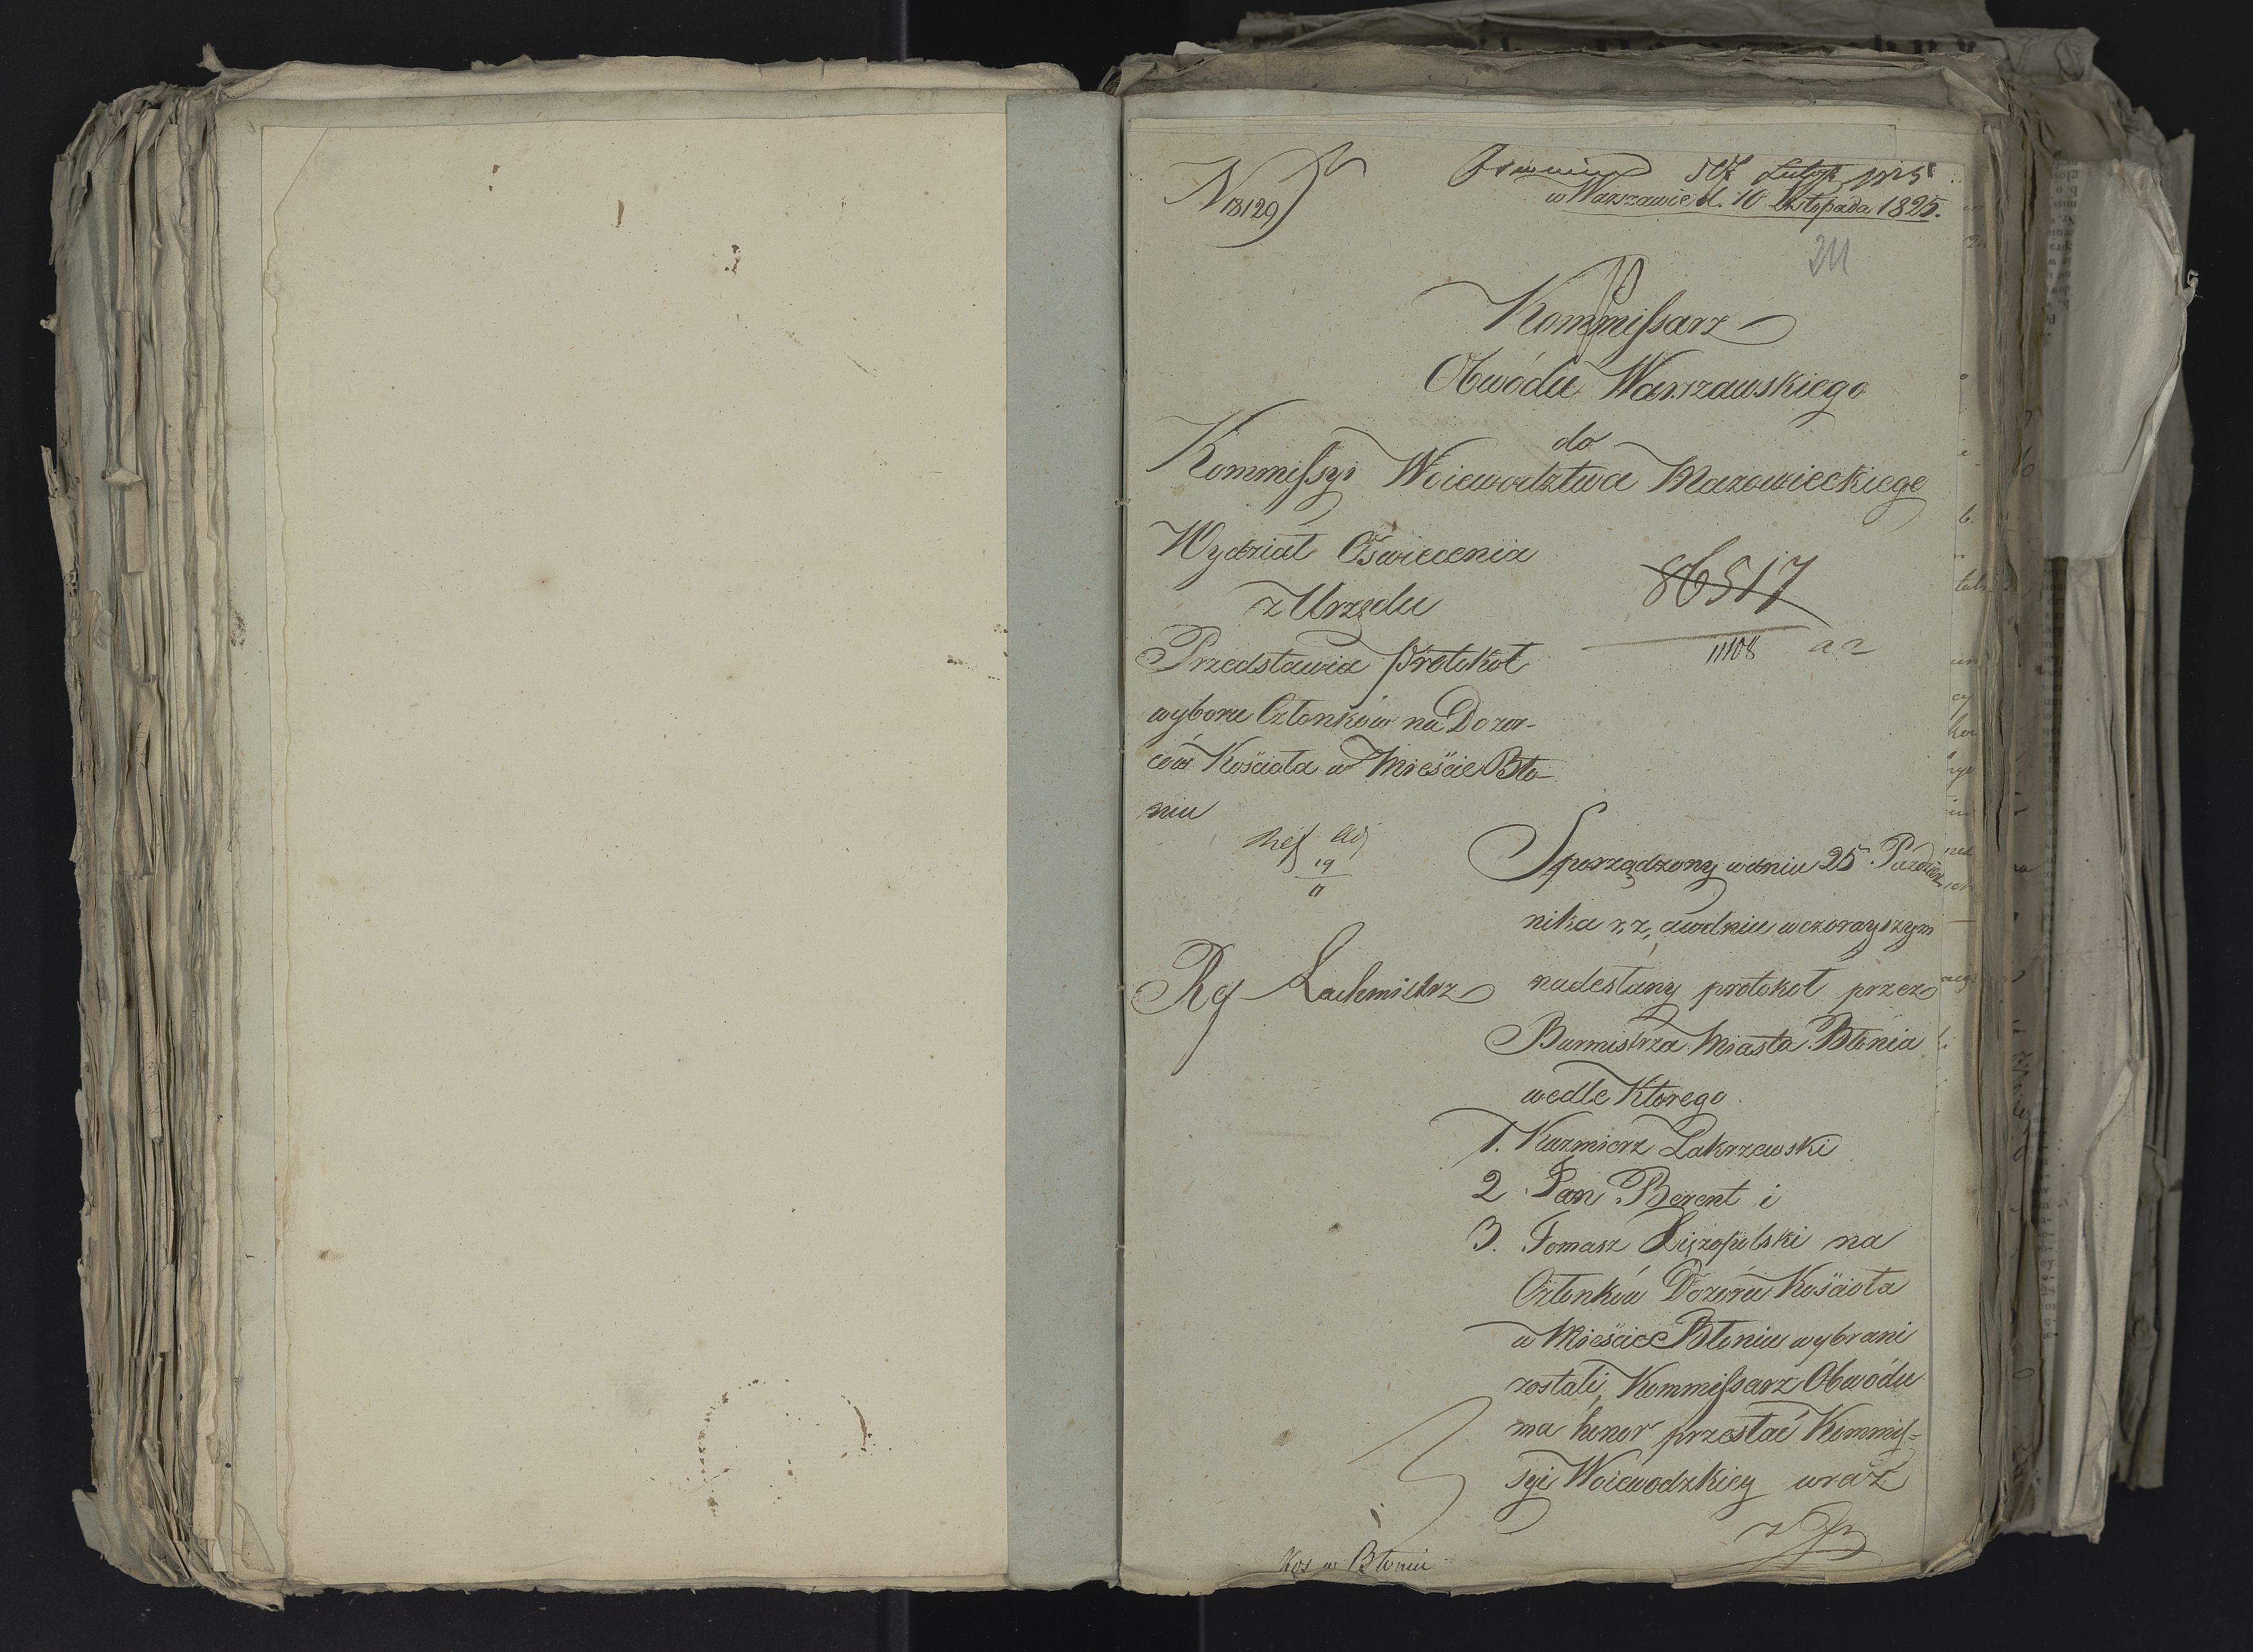 N 18129
w Warszawie d. 10 Listopada 1825.
211
Kommissarz
Obwódu Warszawskiego
do
Kommissyi Woiewodztwa Mazowieckiego
Wydział Oświecenia
z Urzędu
Przedstawia protokół
wyboru Członków na Dozor-
ców Kościoła w Mieście Bło-
niu
86517
11108
19
11
Sporządzony w dniu 25 Paździer-
nika r. z., a w dniu wczorayszym
nadesłany protokół przez
Burmistrza Miasta Błonia
wedle Którego
1. Kazmierz Zakrzewski
2. Jan Berent i
3. Tomasz na
Członków Dozoru Kościoła
w Mieście Błoniu wybrani
zostali, Kommissarz Obwódu
ma honor przesłać Kommis=
syi Woiewodzkiey wraz
z
Kos w Błoniu